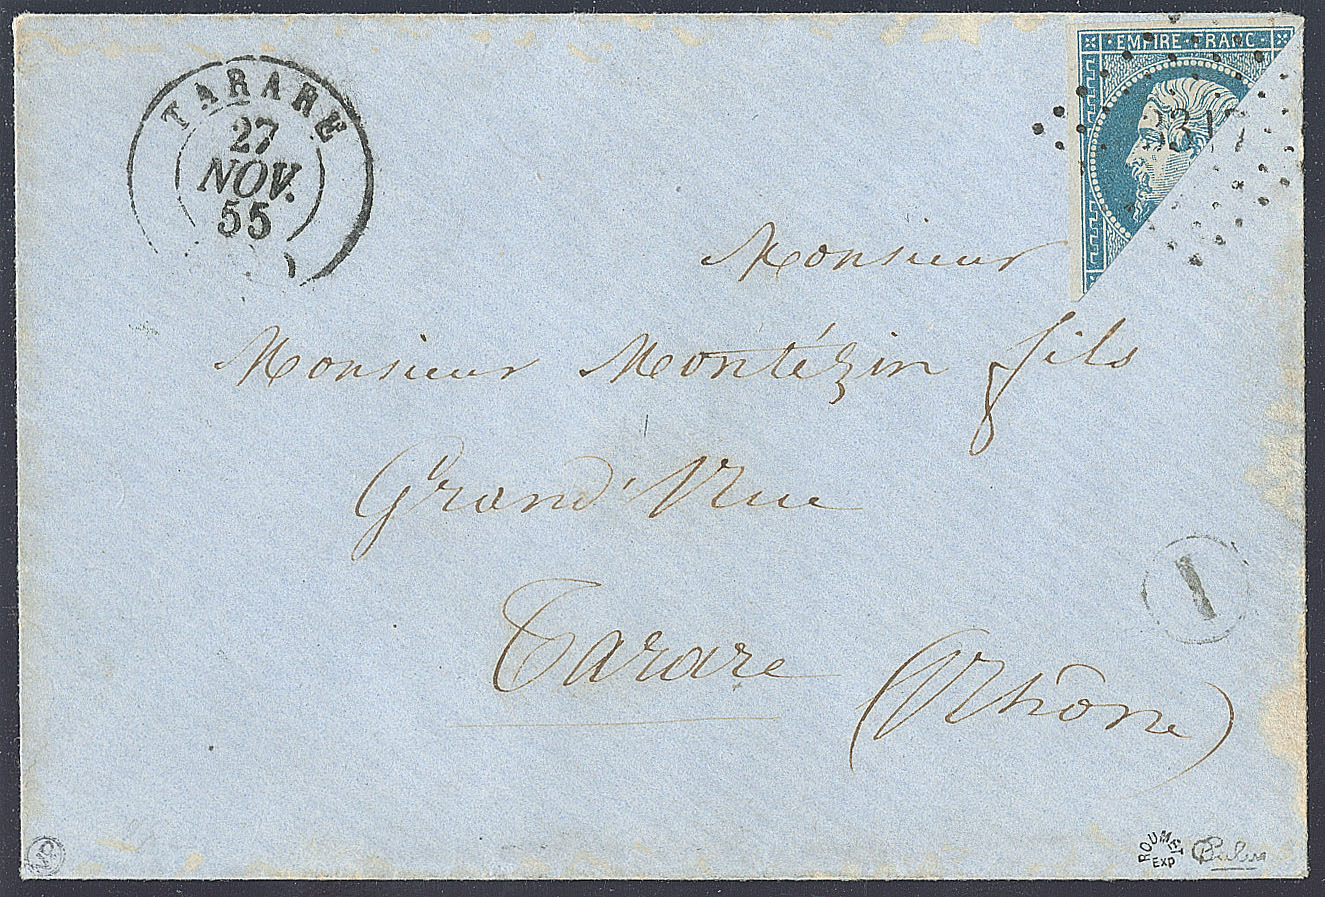 TARARE
27
NOV.
55
EMPIRE FRANC
3317
Monsieur
Monsieur Montézin fils
Grand'Rue
Tarare (Rhône)
1
ROUMET
EXP